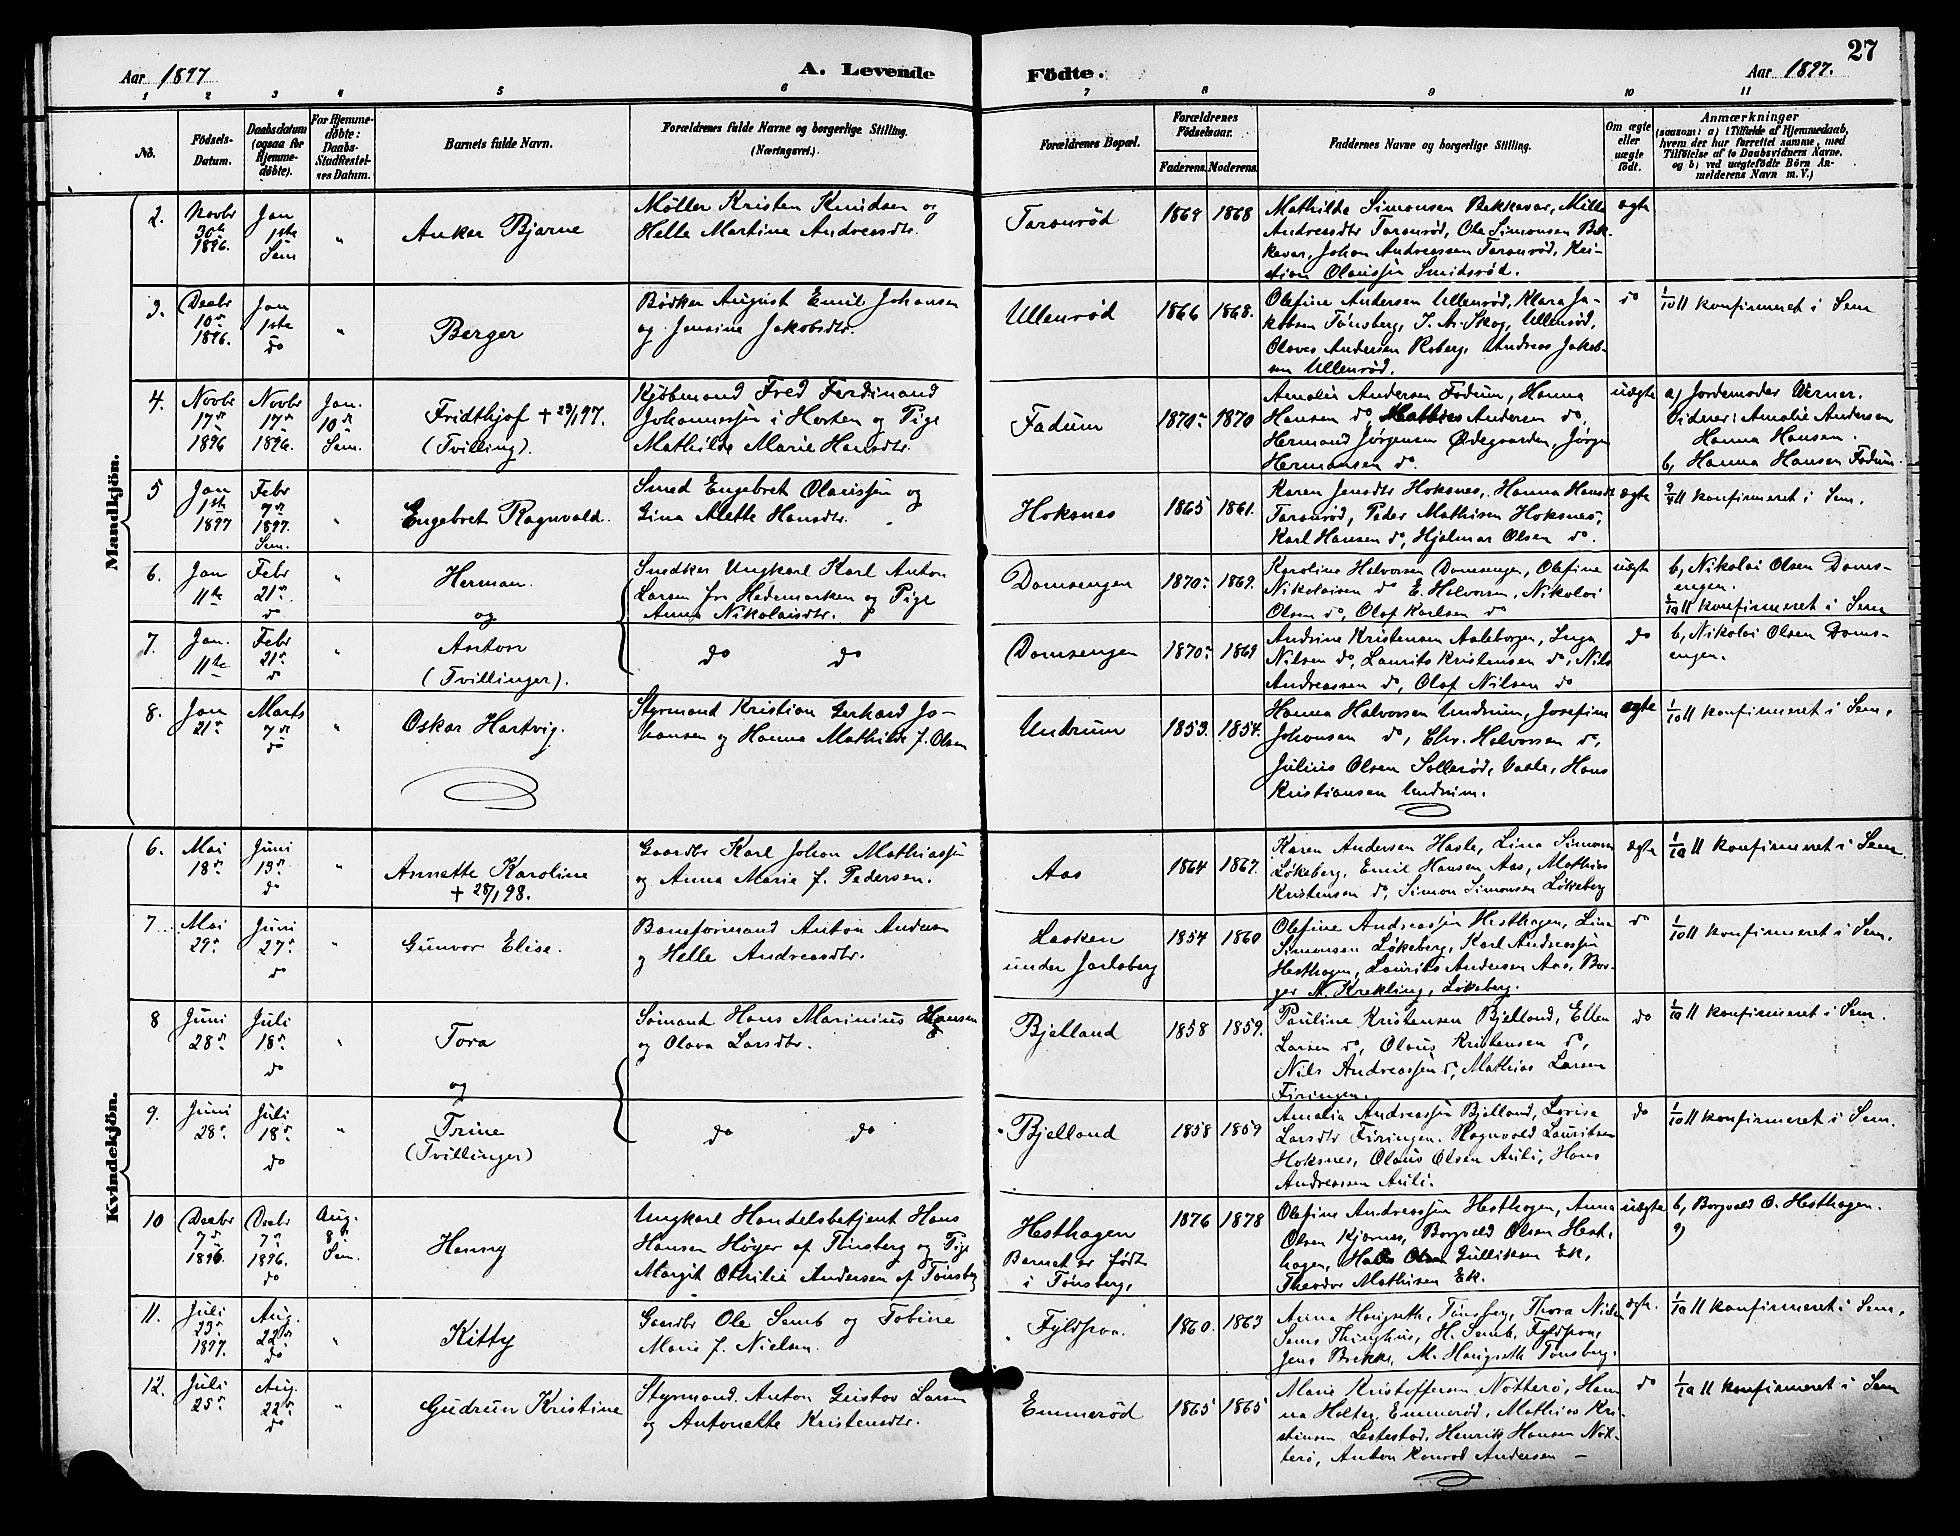 27
Aar 1897
A. Levende Födte.
Aar 1897.
1 2 3 4 5 6 7 8 9 10 11
No.
Födsels-Datum.
Daabsdatum (ogsaa for Hjemmedøbte).
For Hjemmedøbte: Daabs-Stadfestelses Datum.
Barnets fulde Navn.
Forældrenes fulde Navne og borgerlige Stilling. (Næringsvei.)
Forældrenes Bopæl.
Forældrenes Fødselsaar.
Faderens. Moderens.
Faddernes Navne og borgerlige Stilling.
Om ægte eller uægte født.
Anmærkninger
(saasom: a) i Tilfælde af Hjemmedaab, hvem der har forrettet samme, med Tilföielse af to Daabsvidners Navne, og b) ved uægtefødte Börn Anmelderens Navn m. V.)
Mandkjön.
2. Novbr 30te 1896. Jan 1ste Sem " Anker Bjarne
Møller Kristen Knudsen og
Helle Martine Andreasdtr.
Taranrød 1869 1868
Mathilde Simonsen Bekkevar, Milla
Andreasdtr Taranrød, Ole Simonsen Bek-
kevar, Johan Andreassen Taranrød, Kri-
stian Olaussen Smidsrød.
ægte
3. Decbr 10de 1896. Jan 1ste do " Berger
Bødker August Emil Johansen
og Jensine Jakobsdtr.
Ullenrød 1866 1868.
Olefine Andersen Ullenrød, Klara Ja-
kobsen Tønsberg, J. A. Skog, Ullenrød,
Olaves Andersen Roberg, Andreas Jakob-
sen Ullenrød.
do 1/10 11 konfirmeret i Sem
4. Novbr 17de 1896 Novbr 17de 1896. Jan. 10de Sem. Fridthjof + 23/1 97. (Tvilling).
Kjøbmand Fred Ferdinand
Johannessen i Horten og Pige
Mathilde Marie Hansdtr.
Fadum 1870 1870
Amalie Andersen Fadum, Hanna
Hansen do, Mathias Andersen do,
Hermand Jørgensen Ødegaarden, Jørgen
Hermansen do.
uægte a) Jordemoder Werner.
Vidner: Amalie Andersen
Hanna Hansen.
b, Hanna Hansen Fadum.
5 Jan 1ste 1897 Febr 7de 1897. Sem. " Engebret Ragnvald.
Smed Engebret Olaussen og
Gina Alette Hansdtr.
Hoksnes 1865 1861.
Karen Jensdtr Hoksnes, Hanna Hansdt
Taranrød, Peder Mathisen Hoksnes,
Karl Hansen do, Hjalmar Olsen do.
ægte 11 konfirmeret i Sem.
6. Jan 11te Febr 21de do " Herman. og
Snedker Ungkarl Karl Anton
Larsen fra Hedemarken og Pige
Anna Nikolaisdtr.
Domsengen 1870 1869.
Karoline Halvorsen Domsengen, Olefine
Nikolaisen do E. Halvorsen, Nikolai
Olsen do, Olaf Karlsen do
uægte b, Nikolai Olsen Doms-
engen.
1/10 11 konfirmeret i Sem
7. Jan. 11te Febr 21de do " Anton (Tvillinger).
do do
Domsengen 1870 1869
Andrine Kristensen Aaleborgen, Inga
Nilsen do, Laurits Kristensen do, Nils
Andreassen do, Olaf Nilsen do
do b, Nikolai Olsen Doms-
engen.
8. Jan 21de Marts 7de do " Oskar Hartvig.
Styrmand Kristian Gerhard Jo-
hansen og Hanna Mathilde f. Olsen
Undrum 1853. 1854.
Hanna Halvorsen Undrum, Josefine
Johansen do, Chr. Halvorsen do,
Julius Olsen Sollerød, Vaale, Hans
Kristiansen Undrum.
ægte 1/10 11 konfirmeret i Sem.
Kvindekjön.
6. Mai 18de Juni 13de do " Annette Karoline + 28/1 98.
Gaardbr Karl Johan Mathiassen
og Anna Marie f. Pedersen.
Aas 1864 1867.
Karen Andersen Hasle, Lina Simonsen
Løkeberg, Emil Hansen Aas, Mathias
Kristensen do, Simon Simonsen Løkeberg
ægte 1/10 11 konfirmeret i Sem.
7. Mai 29de Juni 27de do " Gunvor Elise.
Baneformand Anton Andersen
og Helle Andreasdtr.
Lasken
under Jarlsberg 1854 1860
Olefine Andreassen Hesthagen, Lina
Simonsen Løkeberg, Karl Andreassen
Hesthagen, Laurits Andersen Aas, Bor-
ger N. Krekling, Løkeberg.
do 1/10 11 konfirmeret i Sem.
8 Juni 28de Juli 18de do " Tora og
Sømand Hans Marinius Hansen
og Olava Larsdtr.
Bjelland 1858 1859.
Pauline Kristensen Bjelland, Ellen
Larsen do, Olaus Kristensen do,
Nils Andreassen do, Mathias Larsen
Firingen.
do 1/10 11 konfirmeret i Sem.
9. Juni 28de Juli 18de do " Trine (Tvillinger)
do do
Bjelland 1858 1859
Amalia Andreassen Bjelland, Lovise
Larsdtr Firingen. Ragnvald Lauritsen
Hoksnes, Olaus Olsen Auli, Hans
Andreassen Auli.
do 1/10 11 konfirmeret i Sem.
10 Decbr 7de 1896 Decbr 7de 1896. do Aug. 8de Sem. Henny
Ungkarl Handelsbetjent Hans
Hansen Høyer af Tønsberg og Pige
Margit Othilie Andersen af Tønsberg
Hesthagen
Barnet er født
i Tønsberg, 1876 1878
Olefine Andreassen Hesthagen, Anna
Olsen Kjærnes, Borgvald Olsen Hest-
hagen, Gulliksen Ek,
Theodor Mathisen Ek.
uægte b, Borgvald O. Hesthagen.
11. Juli 23de 1897. Aug. 22de do " Kitty
Gaardbr Ole Semb og Tobine
Marie f. Nielsen.
Fyldpaa. 1860. 1863
Anna Haugseth, Tønsberg, Thora Niel-
sens Thinghus, H. Semb, Fyldpaa,
Jens Brekke, M. Haugseth Tønsberg.
ægte. 1/10 11 konfirmeret i Sem.
12. Juli 25de Aug. 22de do " Gudrun Kristine
Styrmand. Anton Gustav Larsen
og Antonette Kristensdtr.
Emmerød 1865 1865
Marie Kristoffersen Nøtterø, Han-
na Holter, Emmerød, Mathias Kri-
stensen Lestestad, Henrik Hansen Nøt-
terø, Anton Konrad Andersen –
do 1/10 11 konfirmeret i Sem